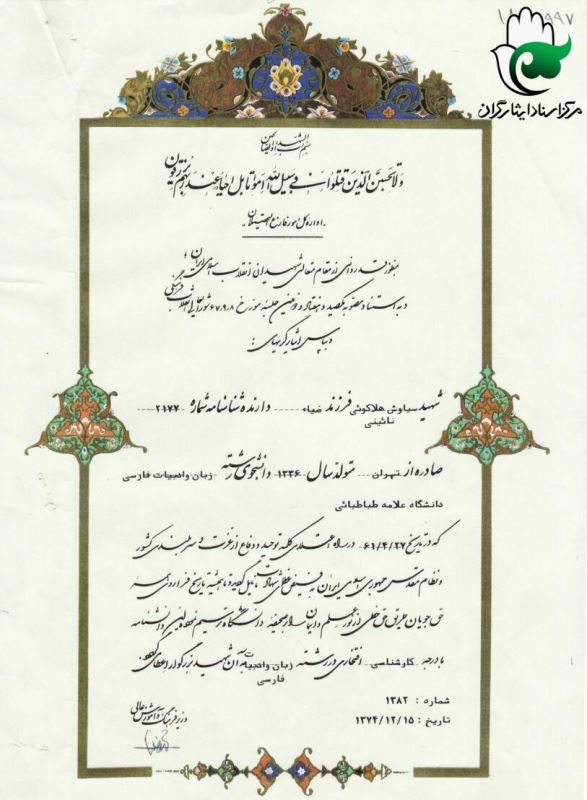 ۹۹۷
مرکز اسناد ایثارگران
بسم رب الشهداء و الصدیقین
ولا تحسبن الذین قتلوا فی سبیل الله امواتا بل احیاء عند ربهم یرزقون
اداره کل امور فارغ التحصیلان
بمنظور قدردانی از مقام متعالی شهیدان انقلاب اسلامی ایران
و به استناد مصوبه یکصد و هفتاد و نهمین جلسه مورخ ۶۷/۹/۸ شورایعالی انقلاب فرهنگی
و بپاس ایثارگریهای :
شهید سیاوش هلاکوئی نائینی فرزند ضیاء دارنده شناسنامه شماره ۲۱۷۷
صادره از تهران متولد سال ۱۳۳۶ دانشجوی رشته زبان و ادبیات فارسی
دانشگاه علامه طباطبائی
که در تاریخ ۶۱/۴/۲۷ در راه اعتلای کلمه توحید و دفاع از عزت و سربلندی کشور
و نظام مقدس جمهوری اسلامی ایران به فیض عظمای شهادت نایل گردید تا همیشه تاریخ فرا راه همه
حق جویان طریق حق از نور علم و ایمان دانشگاه دانشنامه
با درجه کارشناسی افتخاری در رشته زبان و ادبیات فارسی به آن شهید بزرگوار اعطا می گردد
شماره : ۱۳۸۲
تاریخ : ۱۳۷۴/۱۲/۱۵
وزیر فرهنگ و آموزش عالی